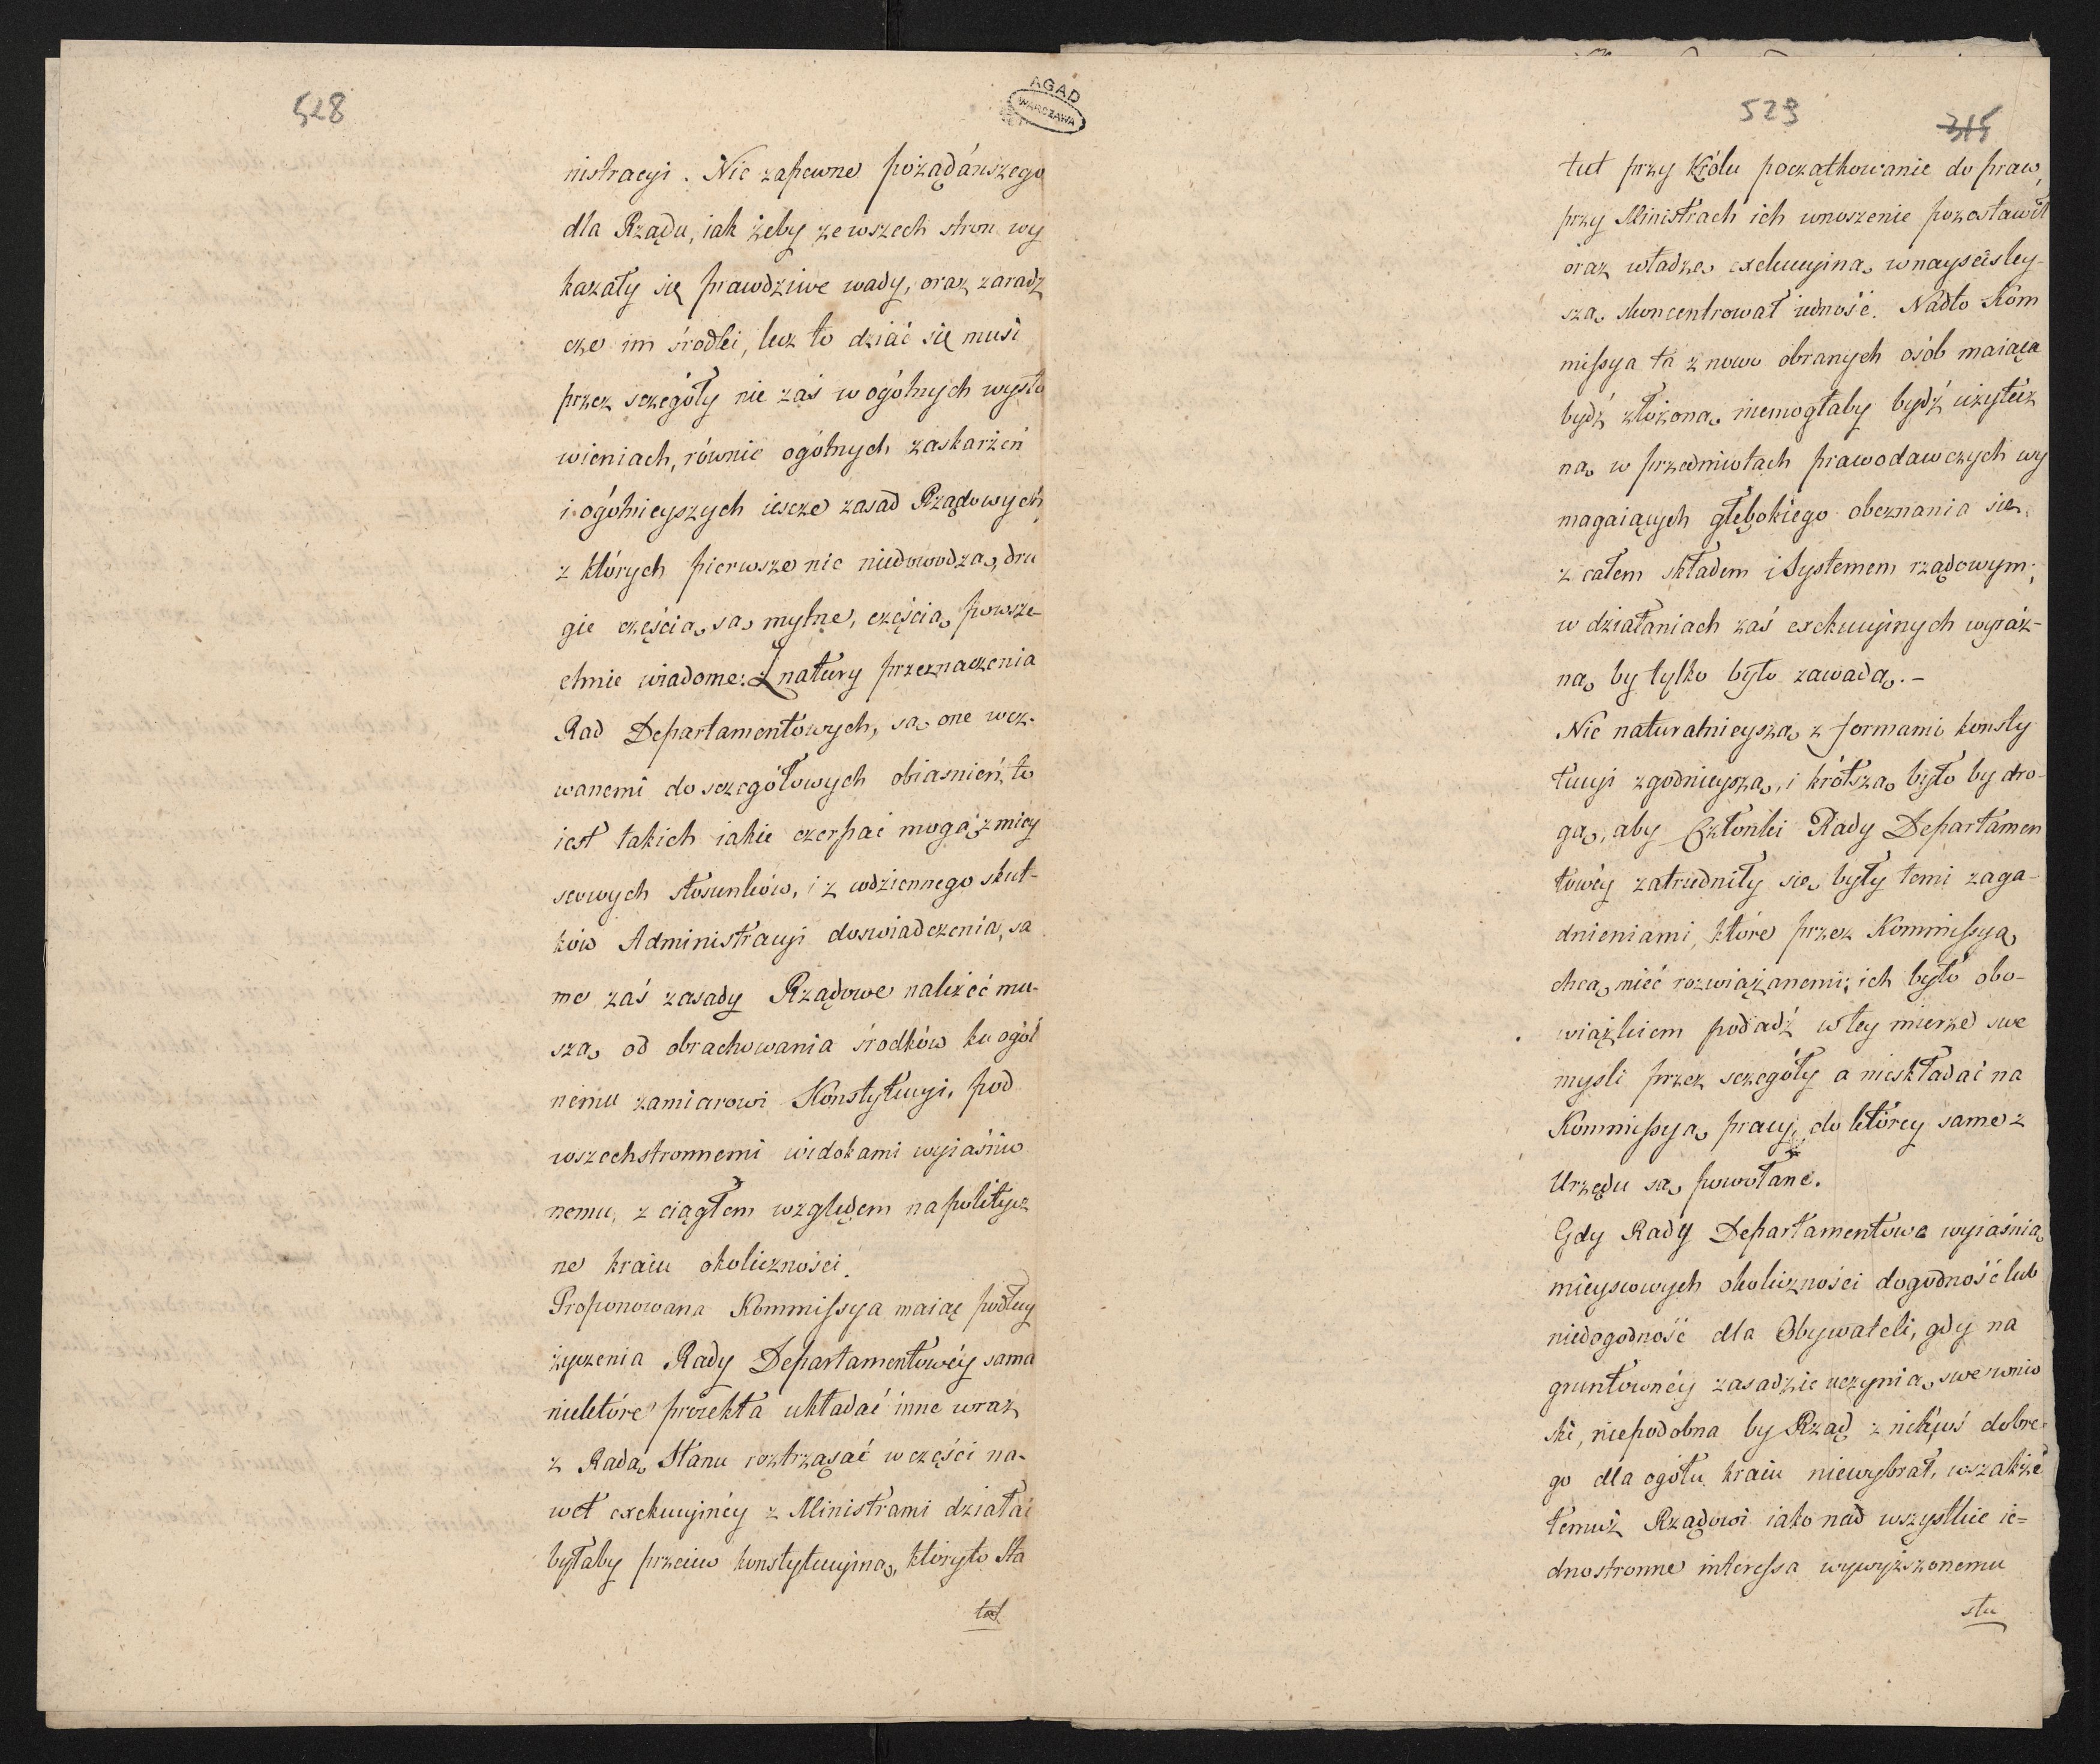 528
AGAD
WARSZAWA
nistracyi. Nic zapewne pożądańszego
dla Rządu, iak żeby ze wszech stron wy
kazały się prawdziwe wady, oraz zaradz
cze im środki, lecz to dziać się musi
przez sczegóły nie zaś w ogólnych wysło
wieniach, równie ogólnych zaskarżeń
i ogólnieyszych iescze zasad Rządowych
z których pierwsze nic niedowodzą, dru
gie częścią są mylne, częścią powsze-
chnie wiadome. Z natury przeznaczenia
Rad Departamentowych, są one wez-
wanemi do sczegółowych obiasnień, to
iest takich iakie czerpać mogą z miey
scowych stosunków, i z codziennego skut-
ków Administracyi doswiadczenia, sa
me zaś zasady Rządowe należeć mu-
szą od obrachowania środków ku ogól
nemu zamiarowi Konstytucyi, pod
wszechstronnemi widokami wyiaśnio
nemu, z ciągłem względem na politycz
ne kraiu okoliczności.
Proponowana Kommissya maiąc podług
życzenia Rady Departamentowéy sama
niektóre proiekta układać inne wraz
z Radą Stanu roztrząsać w części na-
wet exekucyinéy z Ministrami działać
byłaby przeciw konstytucyiną, któryto Sta
tut
529
315
tut przy Królu początkowanie do praw,
przy Ministrach ich wnoszenie pozostawił
oraz władzę exekucyiną w nayściśley-
szą skoncentrował iedność. Nadto Kom
missya ta z nowo obranych osób maiąca
bydź złożoną niemogłaby bydź użytecz
ną w przedmiotach prawodawczych wy
magaiących głębokiego obeznania się
z całem składem i Systemem rządowym;
w działaniach zaś exekucyinych wyraź-
ną by tylko było zawadą. -
Nic naturalnieyszą z formami konsty
tucyi zgodnieyszą, i krótszą było by dro-
gą, aby Członki Rady Departamen
towéy zatrudniły się były temi zaga-
dnieniami, które przez Kommissyą
chcą mieć rozwiązanemi; ich było obo-
wiązkiem podadź w tey mierze swe
mysli przez sczegóły a nieskładać na
Kommissyą pracy, do którey same z
Urzędu są powołane.
Gdy Rady Departamentowe wyiaśnią
mieyscowych okoliczności dogodność lub
niedogodność dla Obywateli, gdy na
gruntownéy zasadzie uczynią swe wnio
ski, niepodobna by Rząd z nich coś dobre-
go dla ogółu kraiu niewybrał, wszakże
temuż Rządowi iako nad wszystkie ie-
dnostronne interessa wywyższonemu
słu